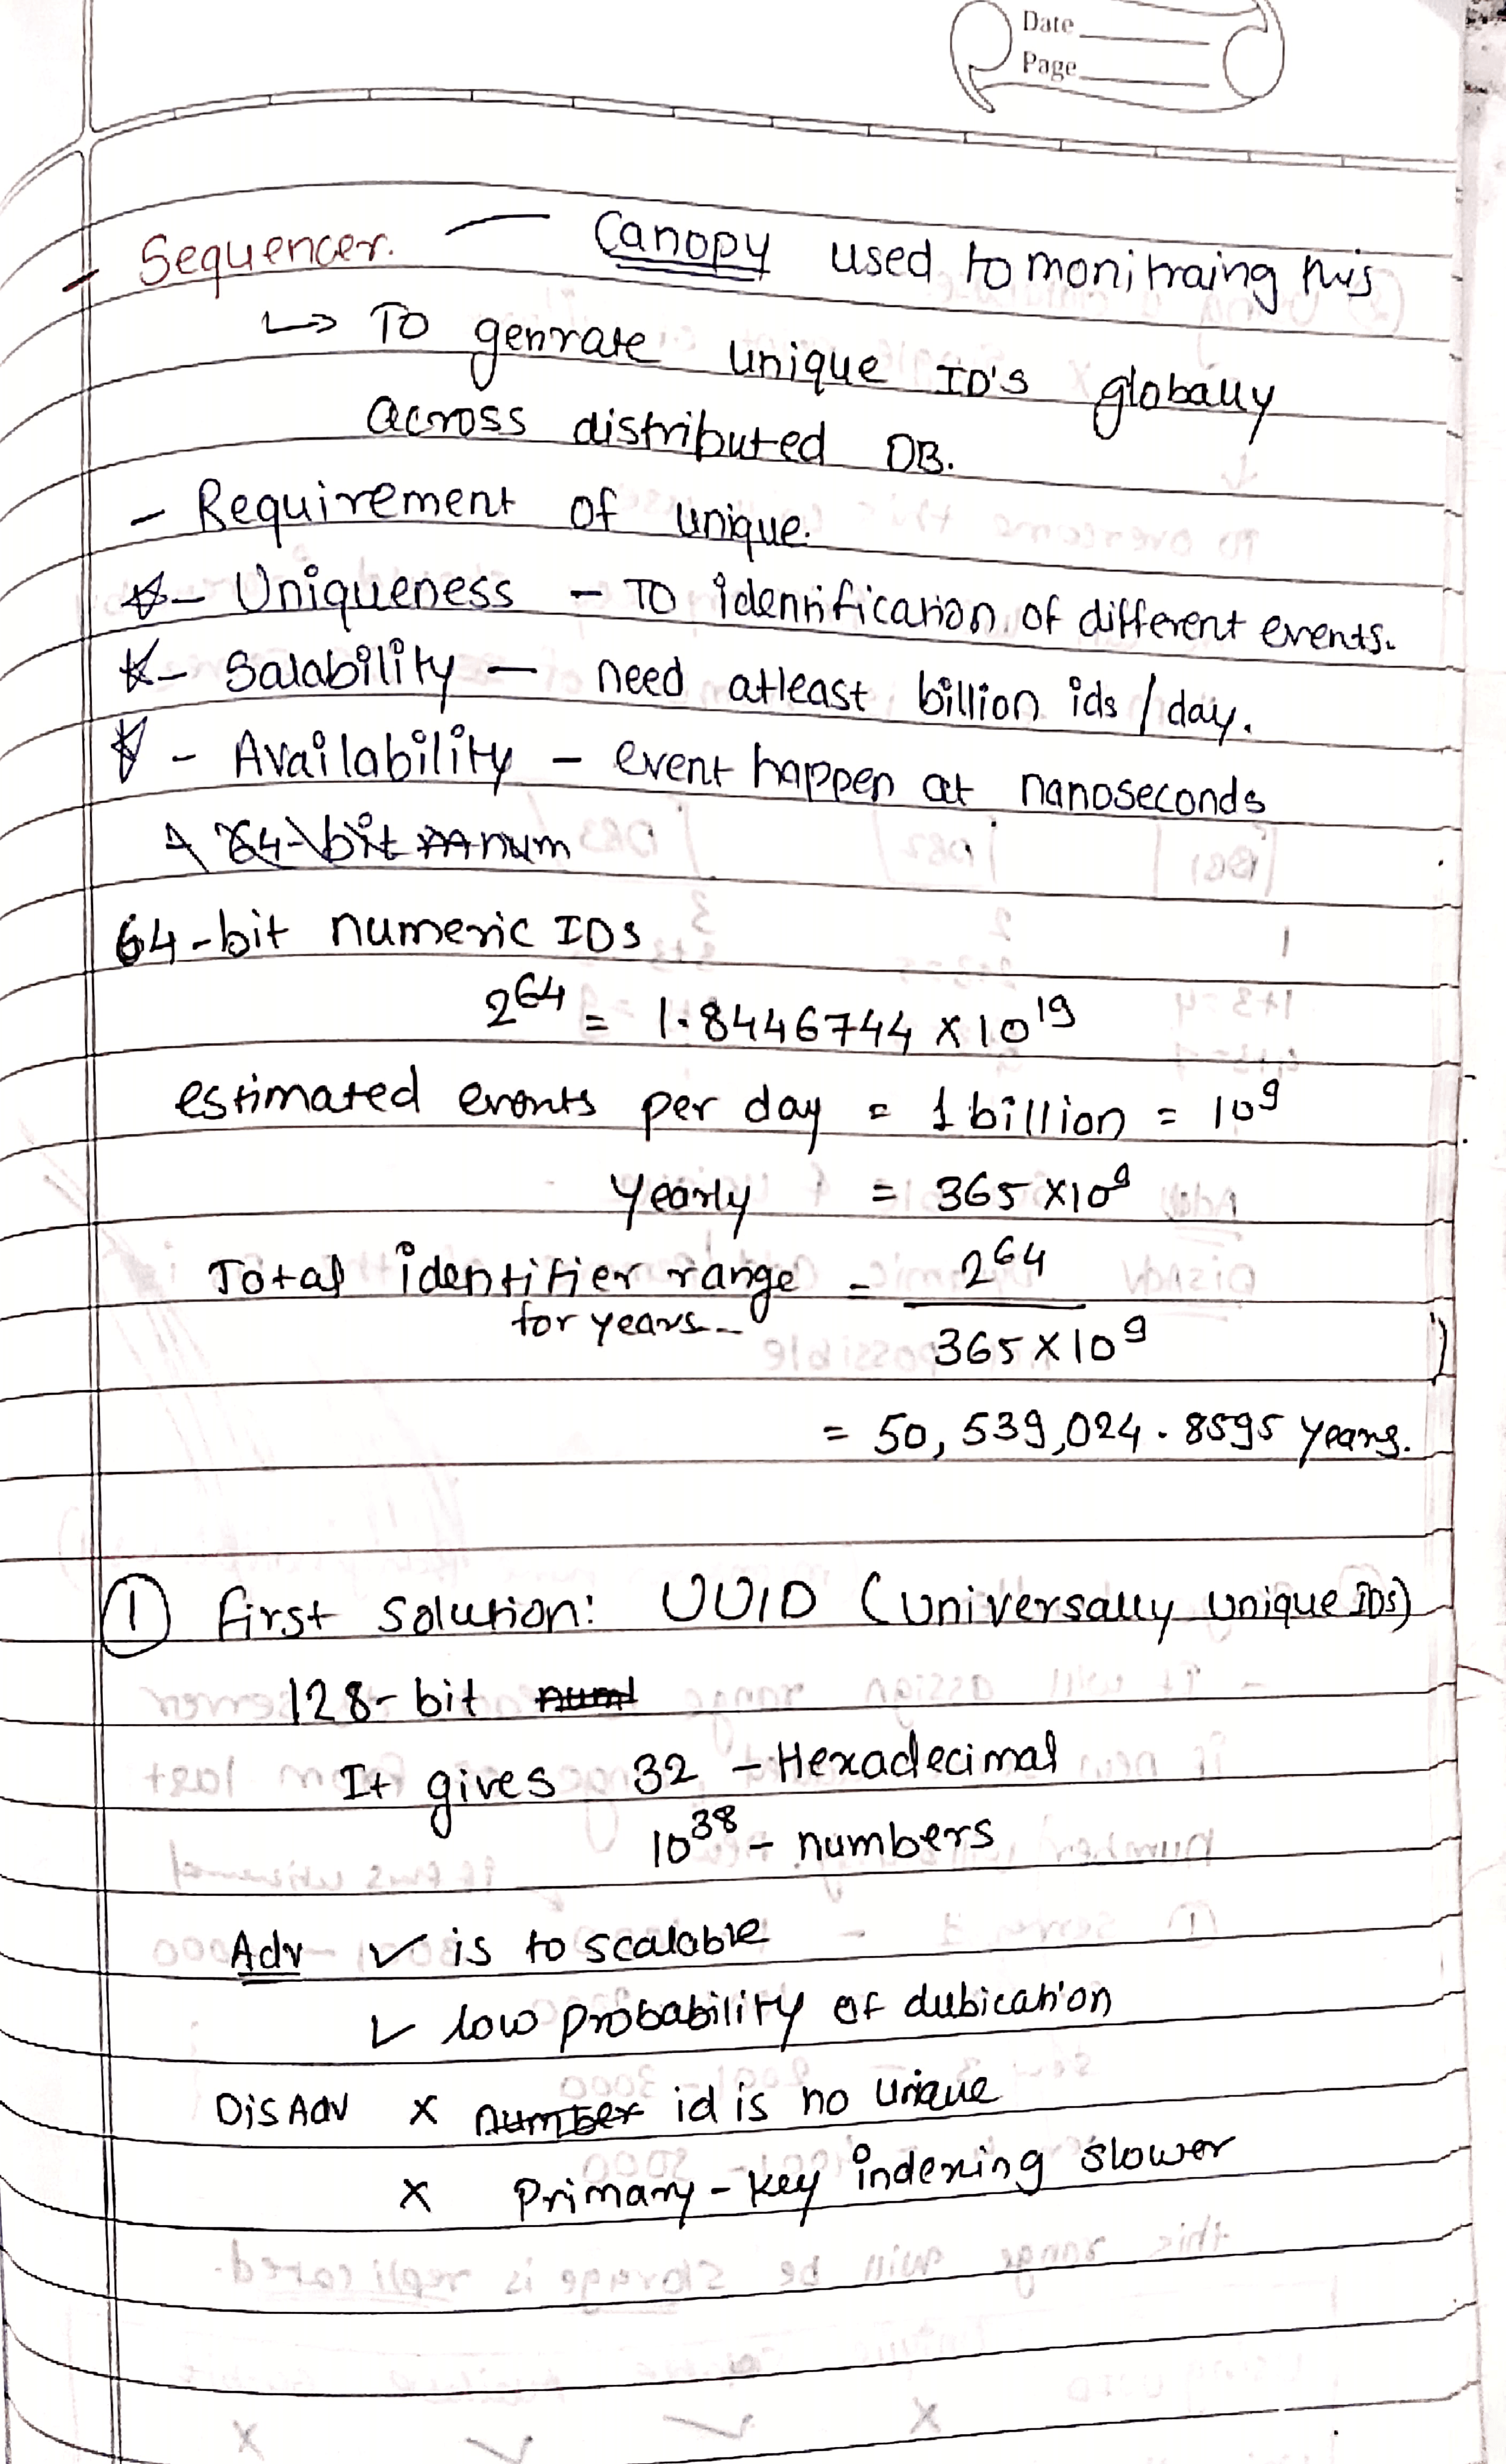 Date
Page
Sequencer. — Canopy used to monitraing this
↳ To genrate unique ID's globally
across distributed DB.
- Requirement of unique.
☆- Uniqueness - To identification of different events.
☆- Salability - need atleast billion ids / day.
☆ - Availability - event happen at nanoseconds
64-bit num
64-bit numeric IDs
2^64 = 1.8446744 x 10^19
estimated events per day = 1 billion = 10^9
Yearly = 365 x 10^9
Total identifier range = 2^64
for years 365 x 10^9
= 50,539,024.8595 years.
① first solution: UUID (Universally unique IDs)
128-bit num
It gives 32 - Hexadecimal
10^38 - numbers
Adv ✓ is to scalable
✓ low probability of dubication
DisAdv x number id is no unique
x Primary-key indexing slower